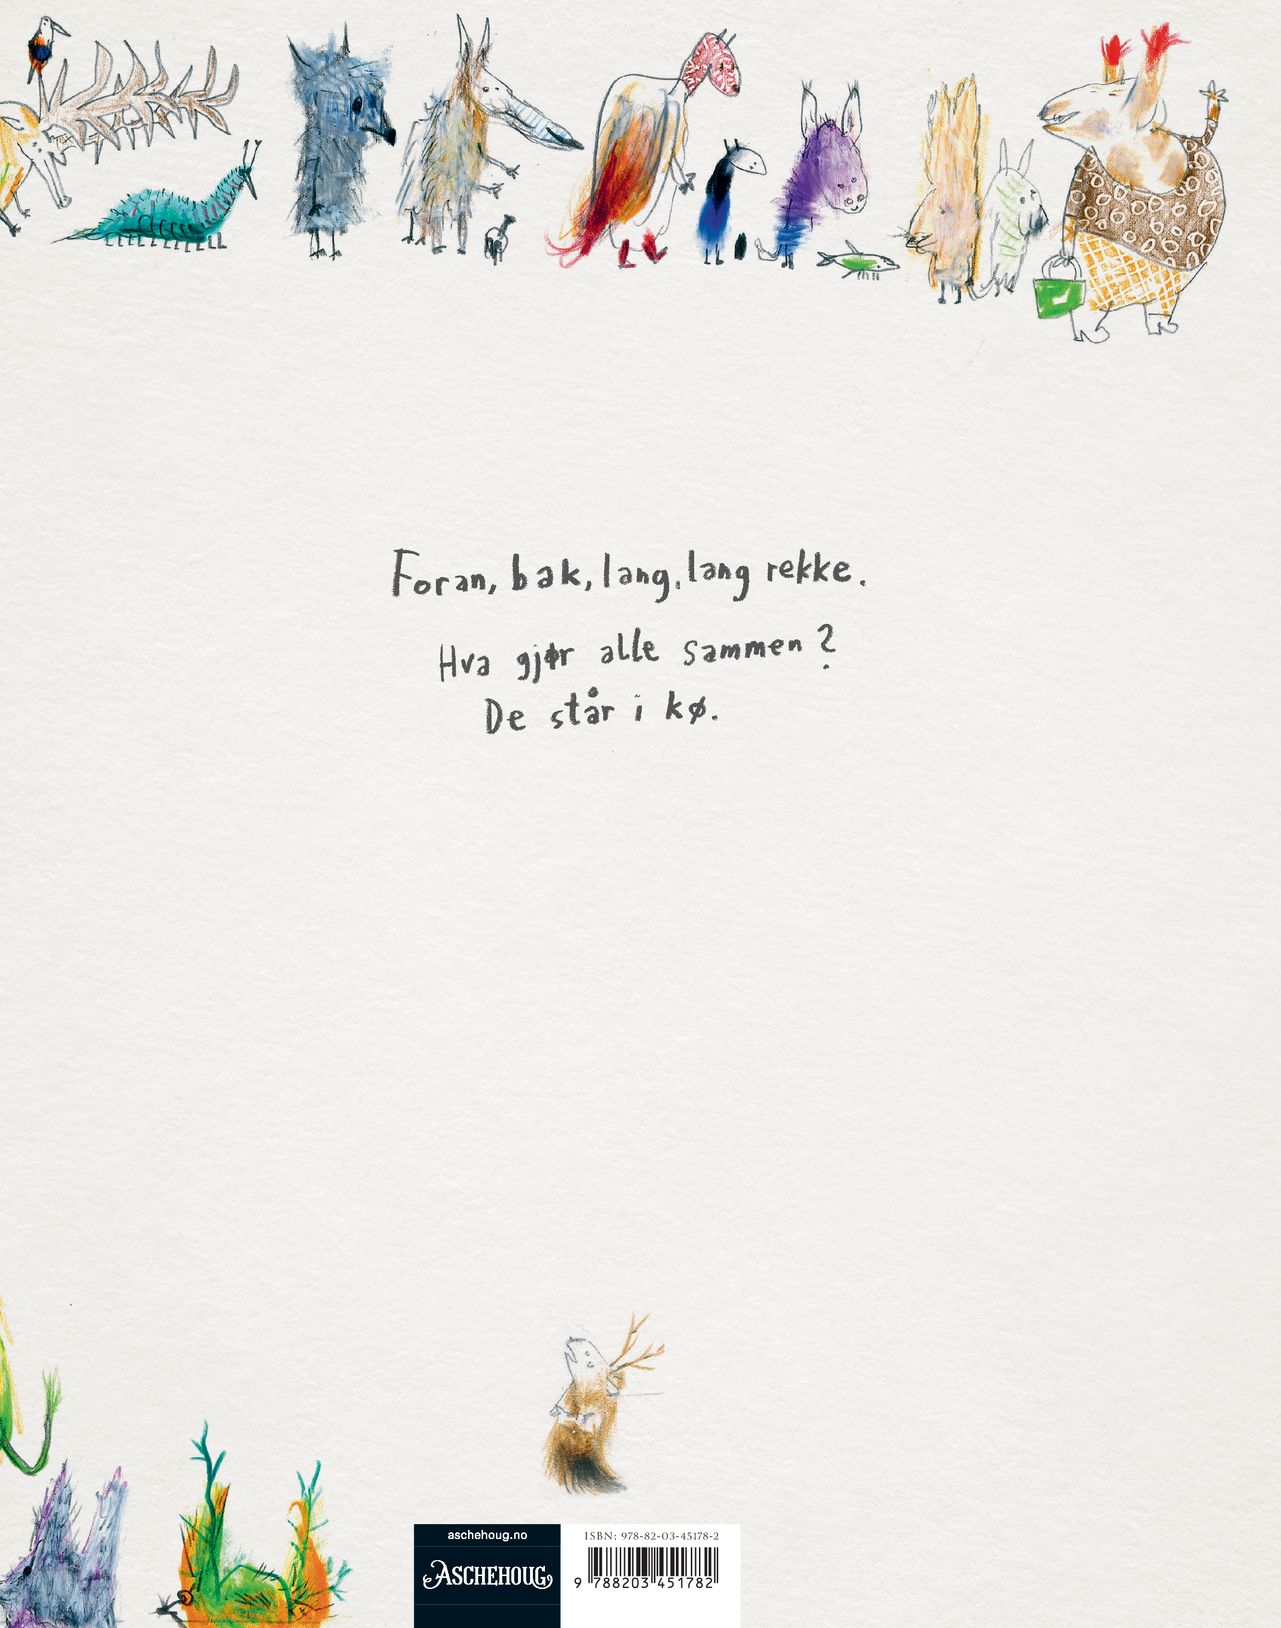 Foran, bak, lang, lang rekke.
Hva gjør alle sammen?
De står i kø.
aschehoug.no
ASCHEHOUG
ISBN: 978-82-03-45178-2
9 788203 451782